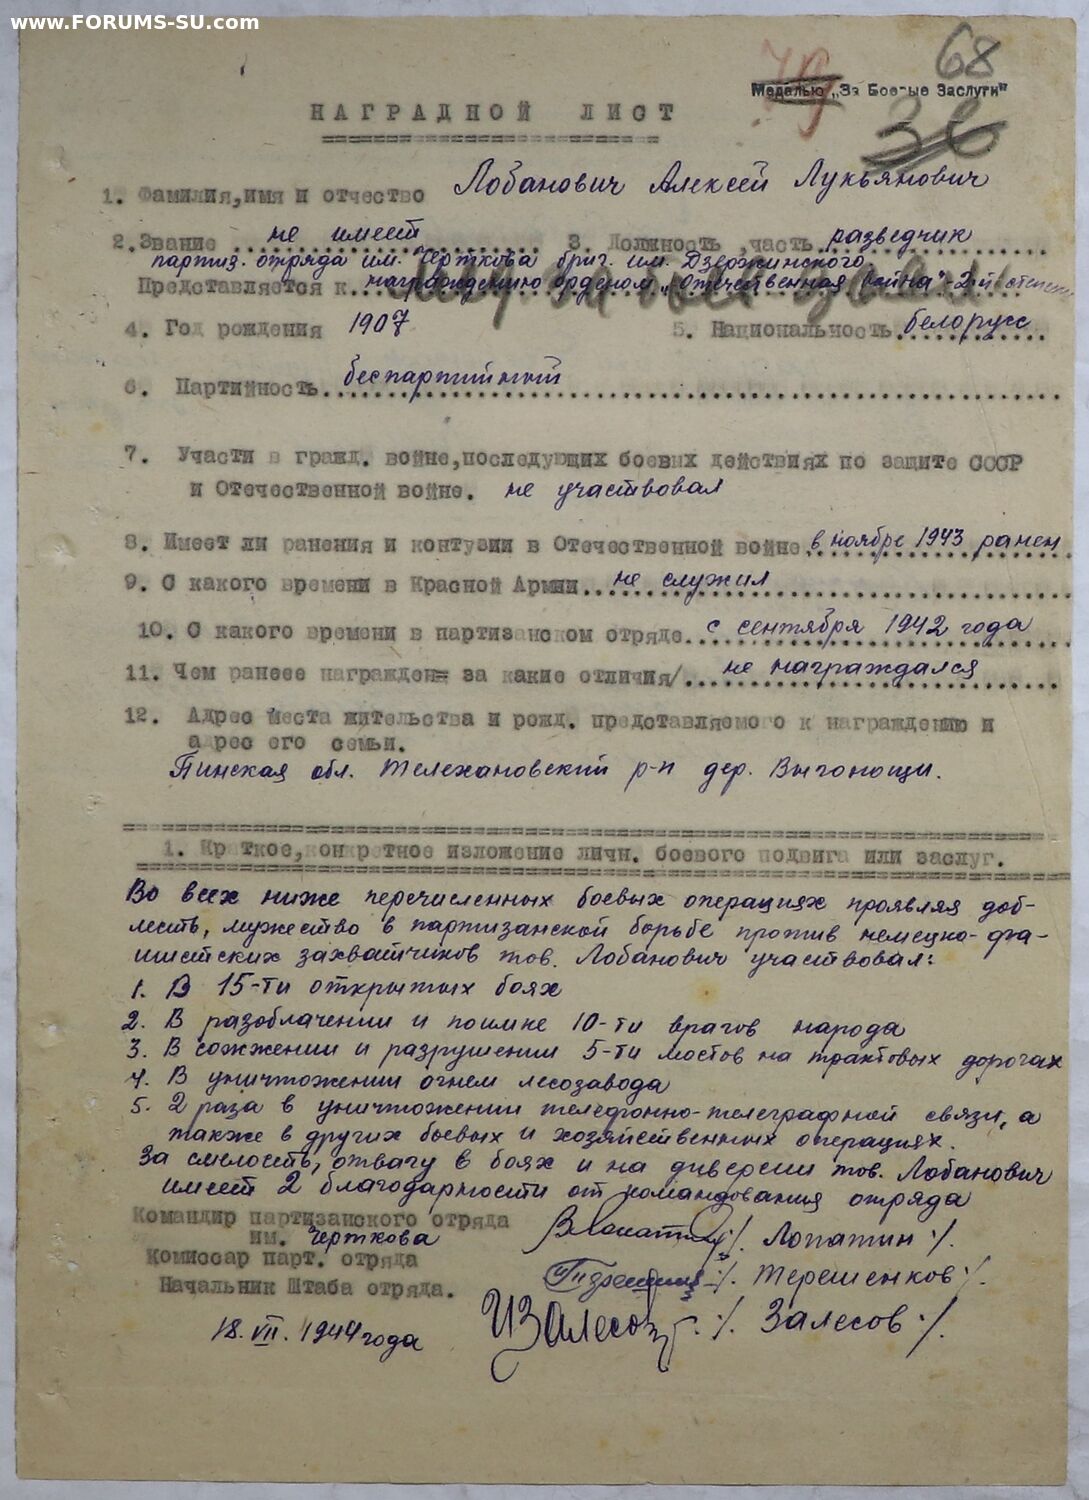 www.FORUMS-SU.com
68
Медалью „За Боевые Заслуги"
НАГРАДНОЙ ЛИСТ
1. Фамилия,имя и отчество Лобанович Алексей Лукьянович
2.Звание не имеет 3. Должность ,часть разведчик
партиз. отряда им. Черткова бриг. им. Дзержинского
Представляется к награждению орденом „Отечественная война"-2-й степени
4. Год рождения 1907 5. Национальность белорусс
6. Партийность беспартийный
7. Участи в гражд. войне,последующих боевых действиях по защите СССР
и Отечественной войне. не участвовал
8. Имеет ли ранения и контузии в Отечественной войне в ноябре 1943 ранен
9. С какого времени в Красной Армии не служил
10. С какого времени в партизанском отряде с сентября 1942 года
11. Чем ранеее награжден за какие отличия/ не награждался
12. Адрес места жительства и рожд. представляемого к награждению и
адрес его семьи.
Пинская обл. Телехановский р-н дер. Выгонощи.
1. Краткое,конкретное изложение личн. боевого подвига или заслуг.
Во всех ниже перечисленных боевых операциях проявляя доб-
лесть, мужество в партизанской борьбе против немецко-фа-
шистских захватчиков тов. Лобанович участвовал:
1. В 15-ти открытых боях
2. В разоблачении и поимке 10-ти врагов народа
3. В сожжении и разрушении 5-ти мостов на трактовых дорогах
4. В уничтожении огнем лесозавода
5. 2 раза в уничтожении телефонно-телеграфной связи, а
также в других боевых и хозяйственных операциях.
За смелость, отвагу в боях и на диверсии тов. Лобанович
имеет 2 благодарности от командования отряда
Командир партизанского отряда
им. Черткова ./. Лопатин ./.
Комиссар парт. отряда ./. Терешенков ./.
Начальник Штаба отряда. ИЗалесов ./. Залесов ./.
18. VII. 1944 года